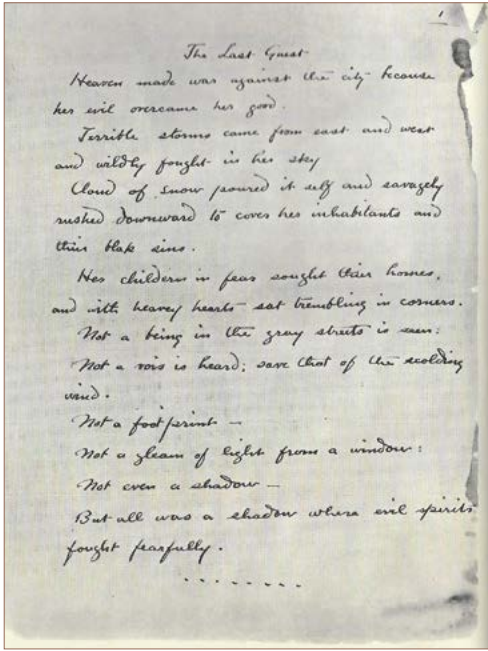 1
The Last Guest
Heaven made war against the city because
her evil overcame her good.
Terrible storms came from east and west
and wildly fought in her sky
Cloud of snow poured it self and savagely
rushed downward to cover her inhabitants and
their blak sins.
Her childern in fear sought their homes,
and with heavey hearts sat trembling in corners.
Not a being in the gray streets is seen:
Not a vois is heard; save that of the scolding
wind.
Not a foot print —
Not a gleam of light from a window:
Not even a shadow —
But all was a shadow where evil spirits
fought fearfully.
. . . . . . . .